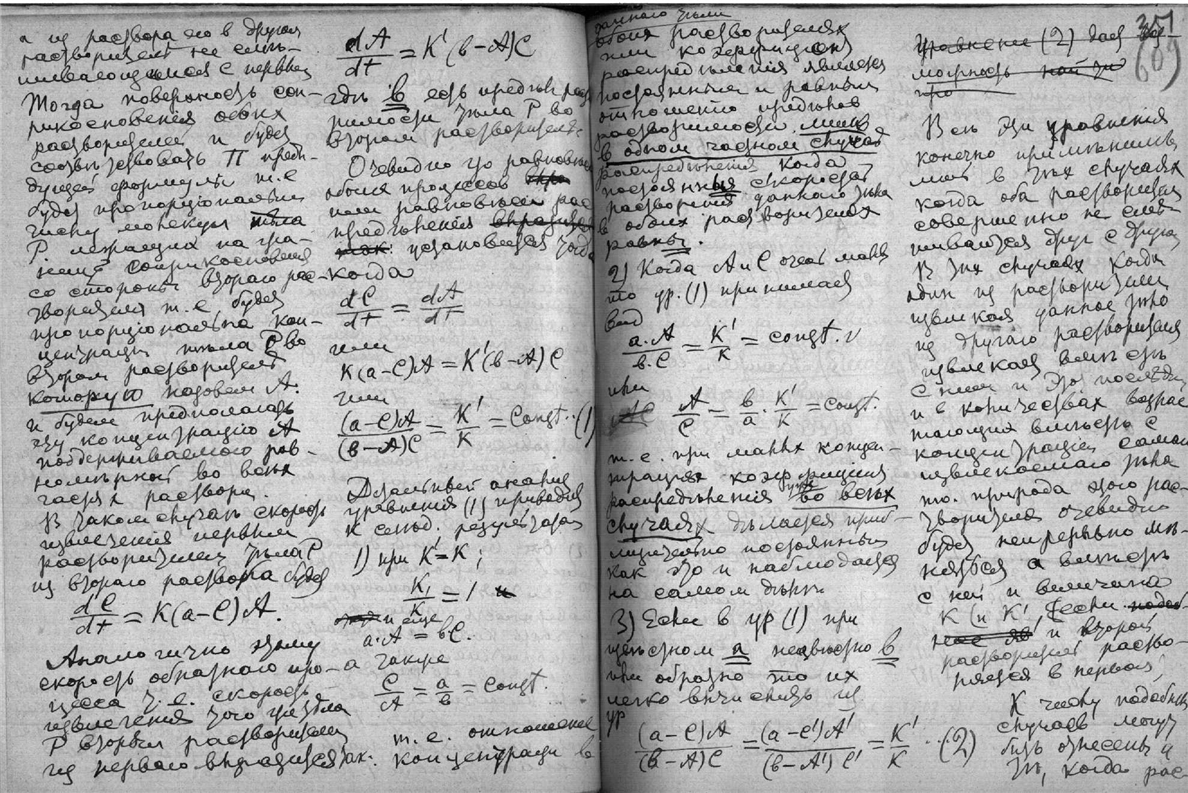 а из раствора его в другом
растворителе не смѣ-
шивающимся с первым
Тогда поверхность соп-
рикосновения обоих
растворителей и будет
соответствовать П преды-
дущей формулы т.е
будет пропорциональна
числу молекул тѣла
Р. лежащих на гра-
нице соприкосновения
со стороны втораго рас-
творителя т.е. будет
пропорциональна кон-
центрации тѣла Р во
втором растворителе
которую назовем А.
и будем предполагать
эту концентрацию А
поддерживаемой рав-
номѣрной во всѣх
частях раствора.
В таком случаѣ скорость
извлечения первым
растворителем тѣла Р
из втораго раствора будет
dC/dt = K(a−C)A.
Аналогично этому
скорость обратнаго про-
цесса т.е. скорость
извлечения того же тѣла
Р вторым растворителем
из перваго выразится так:
dA/dt = K'(в−A)C
гдѣ в есть предѣл раст
римости тѣла Р во
втором растворителе
Очевидно что равновѣсие
обоих процессов
или равновѣсие рас
предѣления выразится
так: установится тогда
когда
dC/dt = dA/dt
или
K(a−C)A = K'(в−A)C
или
(a−C)A/(в−A)C = K'/K = Const. (1)
Дальнѣйший анализ
уравнения (1) приводит
к слѣд. результатам
1) при K' = K;
K'/K = 1 и
и еще
a.A = вC.
а также
C/A = a/в = const.
т.е. отношение
концентраций в
даннаго тѣла
обоих растворителях
или коэффициент
распредѣления является
постоянным и равным
отношению предѣлов
растворимости лишь
в одном частном случаѣ
распредѣления когда
постоянныя скоростей
растворения даннаго тѣла
в обоих растворителях
равны.
2) Когда А и С очень малы
то ур. (1) принимает
вид
a.A/в.C = K'/K = const. и
или
A/C = в/a . K'/K = const.
т.е. при малых концен-
трациях коэффициент
распредѣления во всѣх
случаях дѣлается приб-
лизительно постоянным
как это и наблюдается
на самом дѣлѣ.
3) Если в ур (1) при
извѣстном а неизвѣстно в
или обратно то их
легко вычислить из
ур
(a−C)A/(в−A)C = (a−C')A'/(в−A')C' = K'/K . (2)
351
(60)
Уравнение (2) дает воз
можность найти
про
Всѣ эти уравнения
конечно примѣнимы
лишь в тѣх случаях
когда оба растворителя
совершенно не смѣ-
шиваются друг с другом
В тѣх случаях когда
один из растворителей
извлекая данное тѣло
из другаго растворителя
извлекает вмѣстѣ
с ним и этот послѣдн
и в количествах возрас
тающих вмѣстѣ с
концентрацией самого
извлекаемаго тѣла
то природа этого рас-
творителя очевидно
будет непрерывно мѣ-
няться а вмѣстѣ
с ней и величина
K (и K', если
и второй
растворитель раство-
ряется в первом)
К числу подобных
случаев могут
быть отнесены и
тѣ, когда рас